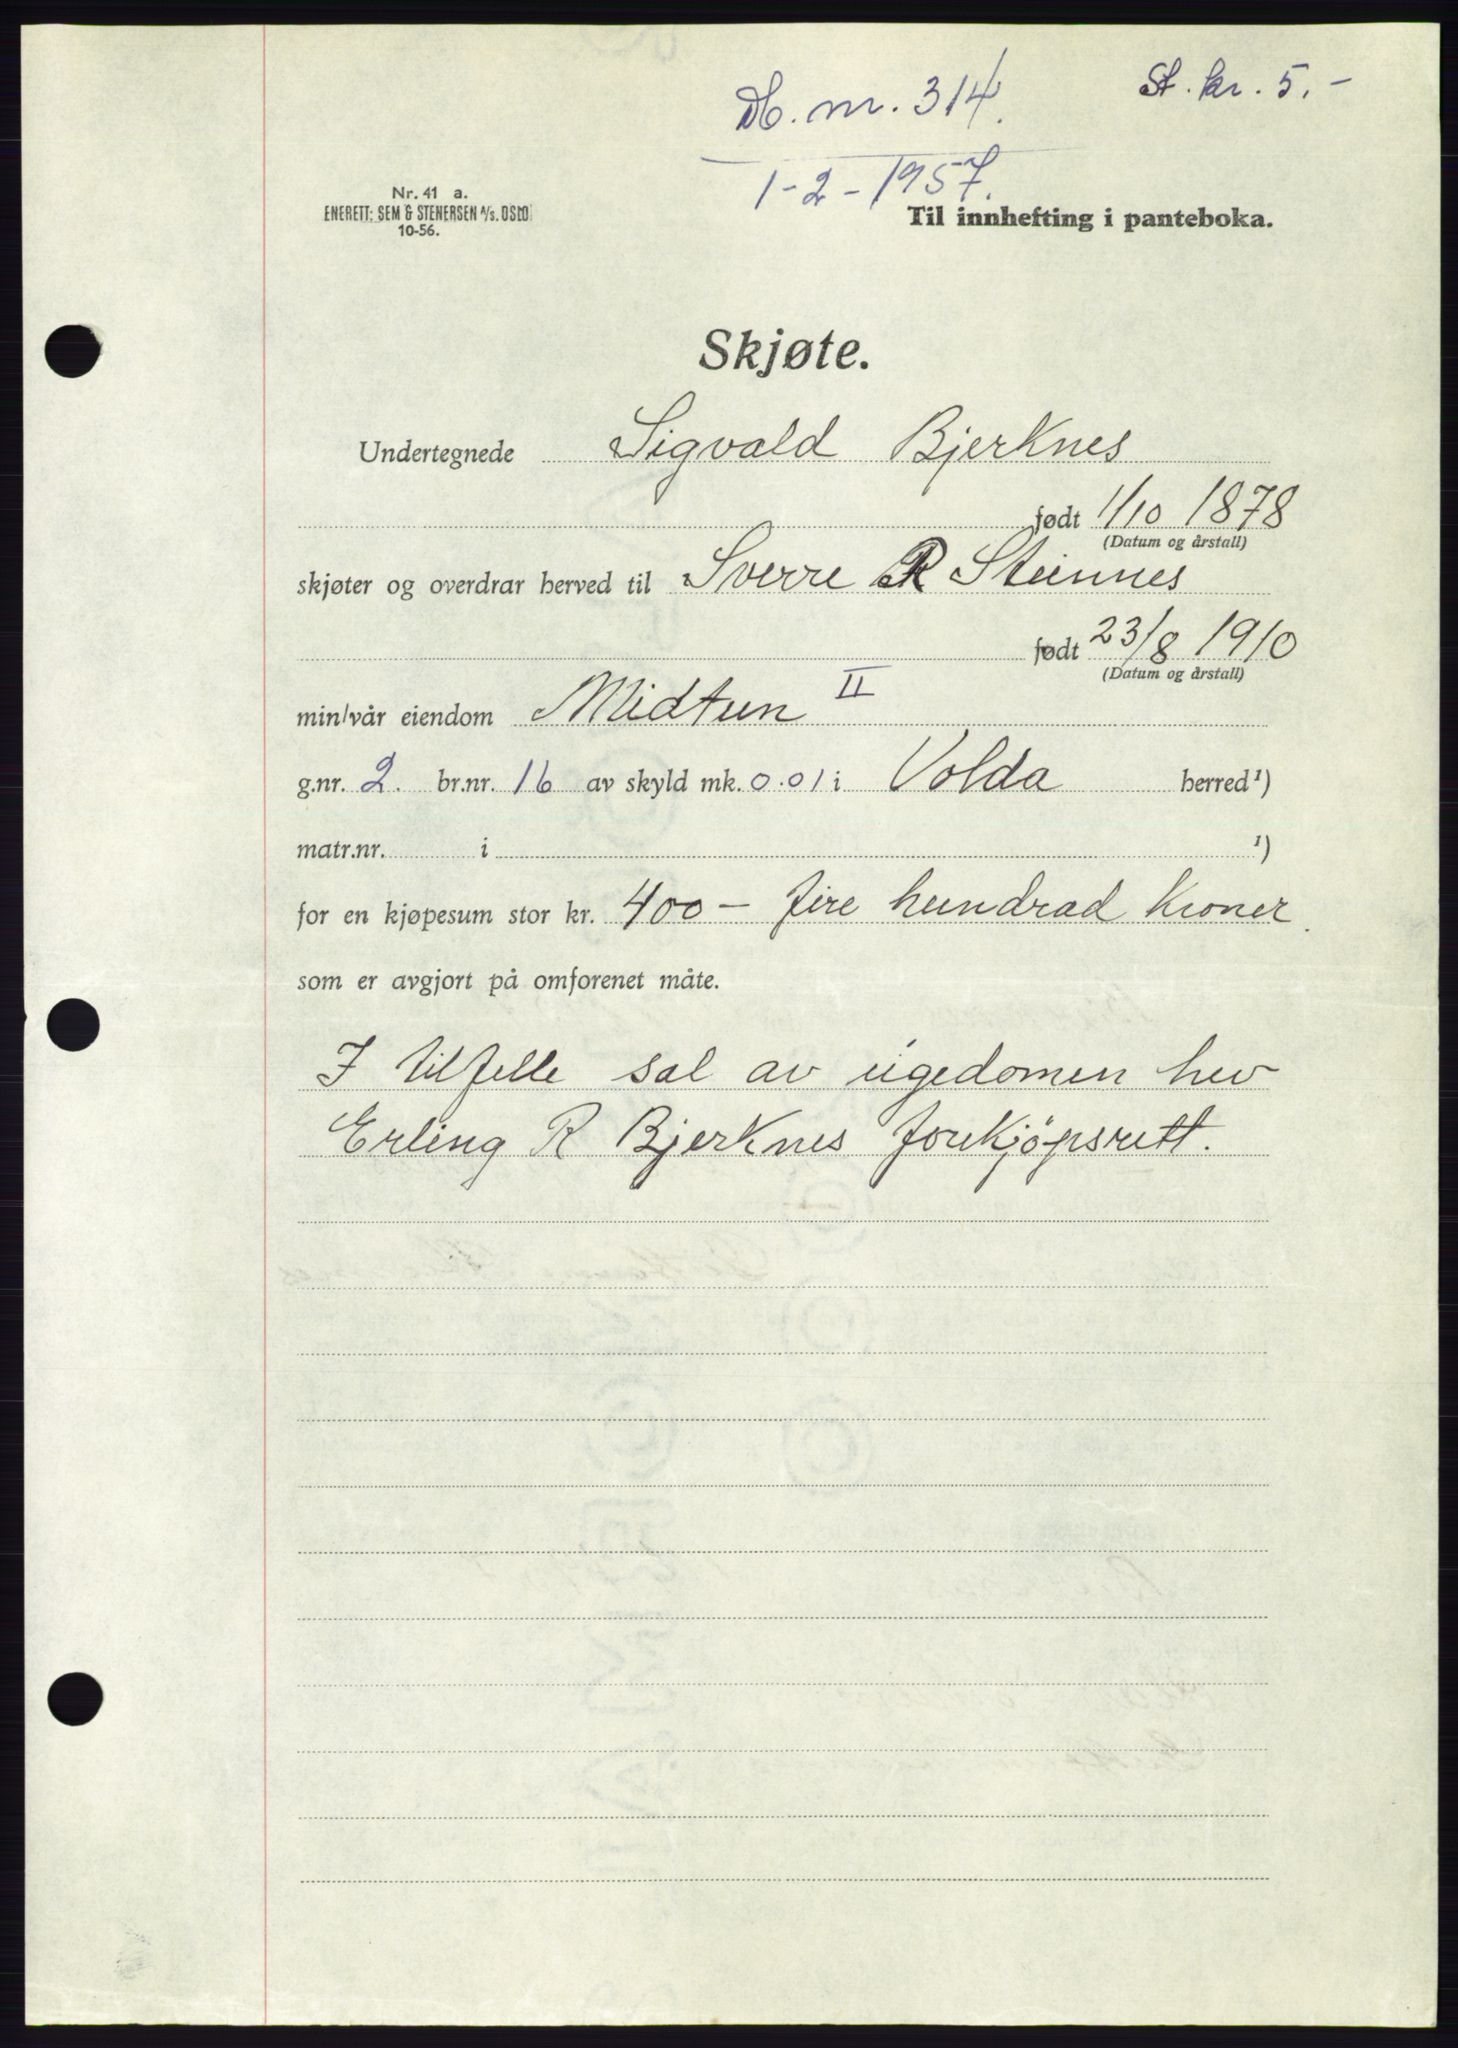 Db. nr. 314.
St. kr. 5.-
1-2-1957.
Nr. 41 a.
ENERETT: SEM & STENERSEN A/S. OSLO
10-56.
Til innhefting i panteboka.
Skjøte.
Undertegnede Sigvald Bjerknes
født 1/10 1878
(Datum og årstall)
skjøter og overdrar herved til Sverre R Steinnes
født 23/8 1910
(Datum og årstall)
min/vår eiendom Midtun II
g.nr. 2. br.nr. 16 av skyld mk. 0.01 i Volda herred¹)
matr.nr. i ¹)
for en kjøpesum stor kr. 400 – fire hundrad kroner.
som er avgjort på omforenet måte.
I tilfelle sal av eigedomen hev
Erling R Bjerknes forkjöpsrett.